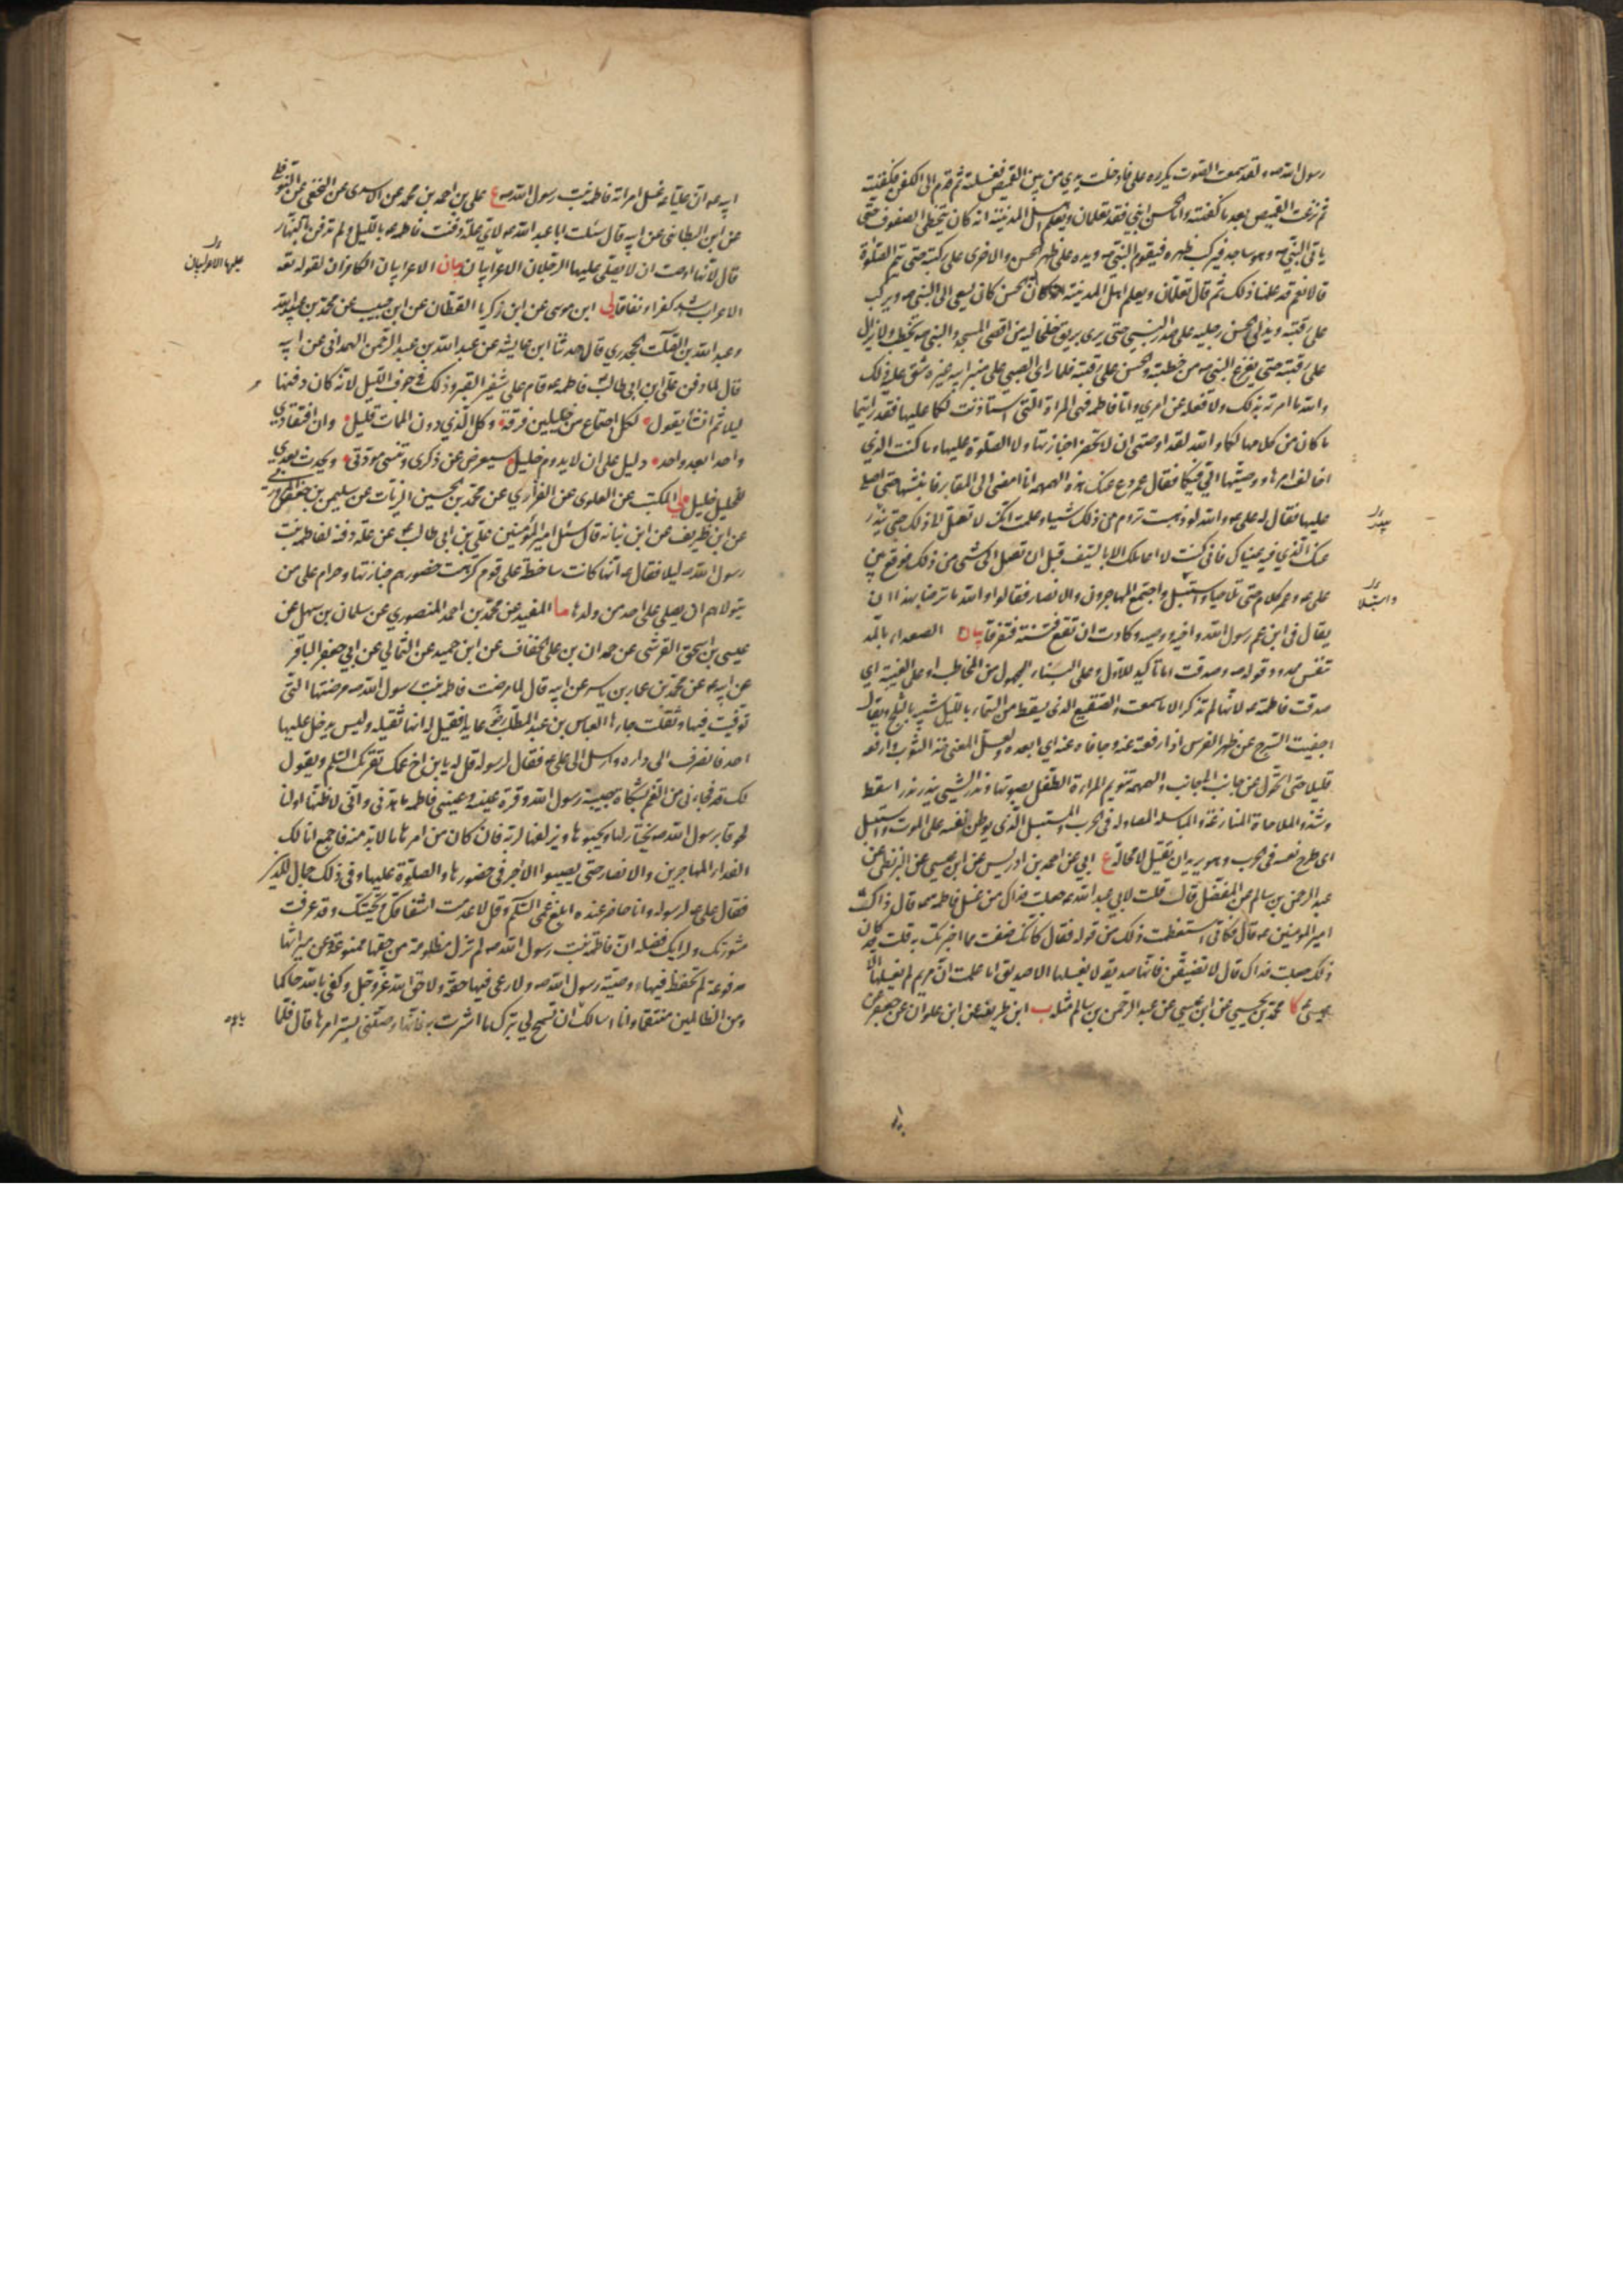 رسول الله ص لقد سمعت الصوت يكرره على فادخلت يدي من بين القميص فغسلته ثم قدم الى الكفن فكفنته
ثم نزعت القميص بعد ما كفنته واما الحسن ابني فقد تعلمان ويعلم اهل المدينة انه كان يتخطى الصفوف حتى
ياتى النبي ص وهو ساجد فيركب ظهره فيقوم النبي ص ويده على ظهر الحسن والاخرى على ركبته حتى يتم الصلوة
قالا نعم قد علمنا ذلك ثم قال تعلمان ويعلم اهل المدينة ان الحسن كان يسعى الى النبي ص ويركب
على رقبته ويدلى الحسن رجليه على صدر النبي حتى يرى بريق خلخاليه من اقصى المسجد والنبي ص يخطب ولا يزال
على رقبته حتى يفرغ النبي ص من خطبته والحسن على رقبته فلما راى الصبي على منبر ابيه غيره شق عليه ذلك
والله ما امرته بذلك ولا فعله عن امرى واما فاطمه فهى المراة التى استاذنت لكما عليها فقد رايتما
ما كان من كلامها لكما والله لقد اوصتنى ان لا تحضرا جنازتها ولا الصلوة عليها وما كنت الذي
اخالف امرها ووصيتها الي فيكما فقال عمر دع عنك هذه الهمهمة انا امضى الى المقابر فانبشها حتى اصلي
عليها فقال له على ع والله لو ذهبت تروم من ذلك شيئا وعلمت انك لا تصل الى ذلك حتى يندر
عنك الذي فيه عيناك فاني كنت لا اعاملك الا بالسيف قبل ان تصل الى شئ من ذلك فوقع بين
على ع وعمر كلام حتى تلاحيا واستبسل واجتمع المهاجرون والانصار فقالوا والله ما نرضا بهذا ان
يقال فى ابن عم رسول الله واخيه ووصيه وكادت ان تقع فتنة فتفرقا بيان الصعداء بالمد
تنفس ممدود قوله ص وصدقت اما تأكيد للاول وعلى البناء المجهول من المخاطب او على الغيبة اي
صدقت فاطمه ع لانها لم تذكر الا ما سمعت والصقيع الذي يسقط من السماء بالليل شبيه بالثلج ويقال
اجفيت السرج عن ظهر الفرس اذا رفعته عنه وجافاه عنه اي ابعده ولعل المعنى خذ الثوب وارفعه
قليلا حتى اتحول من جانب الى جانب والهمهمة تنويم المراءة الطفل بصوتها وندر الشيئ يندر ندرا سقط
وشذ والملاحاة المنازعة والمباسله المصاوله فى الحرب والمستبسل الذي يوطن نفسه على الموت واستبسل
اى طرح نفسه فى الحرب وهو يريد ان يقتل لا محالة ع ابي عن احمد بن ادريس عن ابن عيسى عن البزنطى عن
عبد الرحمن بن سالم عن المفضل قال قلت لابي عبد الله ع جعلت فداك من غسل فاطمه ع قال ذاك
امير المومنين ع قال فكاني استفظعت ذلك من قوله فقال كانك ضقت مما اخبرتك به قلت قد كان
ذلك جعلت فداك قال لا تضيقن فانها صديقه لا يغسلها الا صديق اما علمت ان مريم لم يغسلها الا
عيسى ع كا محمد بن يحيى عن ابن عيسى عن عبد الرحمن بن سالم مثله ب ابن طريف عن ابن علوان عن جعفر عن
يندر
واستبلا
ابيه ع ان عليا ع غسل امراته فاطمه بنت رسول الله ص ع على بن احمد بن محمد عن الاسدى عن النخعى عن النوفلي
عن ابن البطائنى عن ابيه قال سئلت ابا عبد الله ع لاي علة دفنت فاطمه ع بالليل ولم تدفن بالنهار
قال لانها اوصت ان لا يصلى عليها الرجلان الاعرابيان بيان الاعرابيان الكافران لقوله تعه
الاعراب اشد كفرا ونفاقا لى ابن موسى عن ابن زكريا القطان عن ابن حبيب عن محمد بن عبيد الله
وعبد الله بن الصلت الجحدري قال حدثنا ابن عايشه عن عبد الله بن عبد الرحمن الهمدانى عن ابيه
قال لما دفن على ابن ابى طالب فاطمه ع قام على شفير القبر وذلك فى جوف الليل لانه كان دفنها
ليلا ثم انشأ يقول لكل اجتماع من خليلين فرقة وكل الذي دون الممات قليل وان افتقادي
واحدا بعد واحد دليل على ان لا يدوم خليل سيعرض عن ذكرى وتنسى مودتى ويحدث بعدي
للخليل خليل لي المكتب عن العلوى عن الفزاري عن محمد بن الحسين الزيات عن سليمن بن حفص المروزي
عن ابن ظريف عن ابن نباته قال سئل امير المؤمنين على بن ابى طالب ع عن علة دفنه لفاطمه بنت
رسول الله ص ليلا فقال ع انها كانت ساخطة على قوم كرهت حضورهم جنازتها وحرام على من
يتولاهم ان يصلى على احد من ولدها ما المفيد عن محمد بن احمد المنصوري عن سلمان بن سهل عن
عيسى بن اسحق القرشى عن حمدان بن على الخفاف عن ابن حميد عن الثمالي عن ابي جعفر الباقر
عن ابيه ع عن محمد بن عمار بن ياسر عن ابيه قال لما مرضت فاطمه بنت رسول الله ص مرضتها التى
توفيت فيها وثقلت جاءها العباس بن عبد المطلب رض عايدا فقيل له انها ثقيله وليس يدخل عليها
احد فانصرف الى داره وارسل الى على ع فقال لرسوله قل له يابن اخ عمك يقرئك السلم ويقول
لك قد فجاءنى من الغم بشكاة حبيبة رسول الله وقرة عينه وعينى فاطمه ما هدنى واني لاظنها اولنا
لحوقا برسول الله ص يختار لها ويحبوها ويزلفها لربه فان كان من امرها ما لا بد منه فاجمع انا لك
الفداء المهاجرين والانصار حتى يصيبوا الاجر فى حضورها والصلوة عليها وفى ذلك جمال للدين
فقال على ع لرسوله وانا حاضر عنده ابلغ عمى السلم وقل لا عدمت اشفاقك وتحيتك وقد عرفت
مشورتك ولرايك فضله ان فاطمة بنت رسول الله ص لم تزل مظلومة من حقها ممنوعة وعن ميراثها
مدفوعة لم تحفظ فيها وصية رسول الله ص ولا رعى فيها حقه ولا حق الله عز وجل وكفى بالله حاكما
ومن الظالمين منتقما وانا اسالك ان تسمح لي بترك ما اشرت به فانها وصتنى بستر امرها قال فلما
عليها الاعرابيان